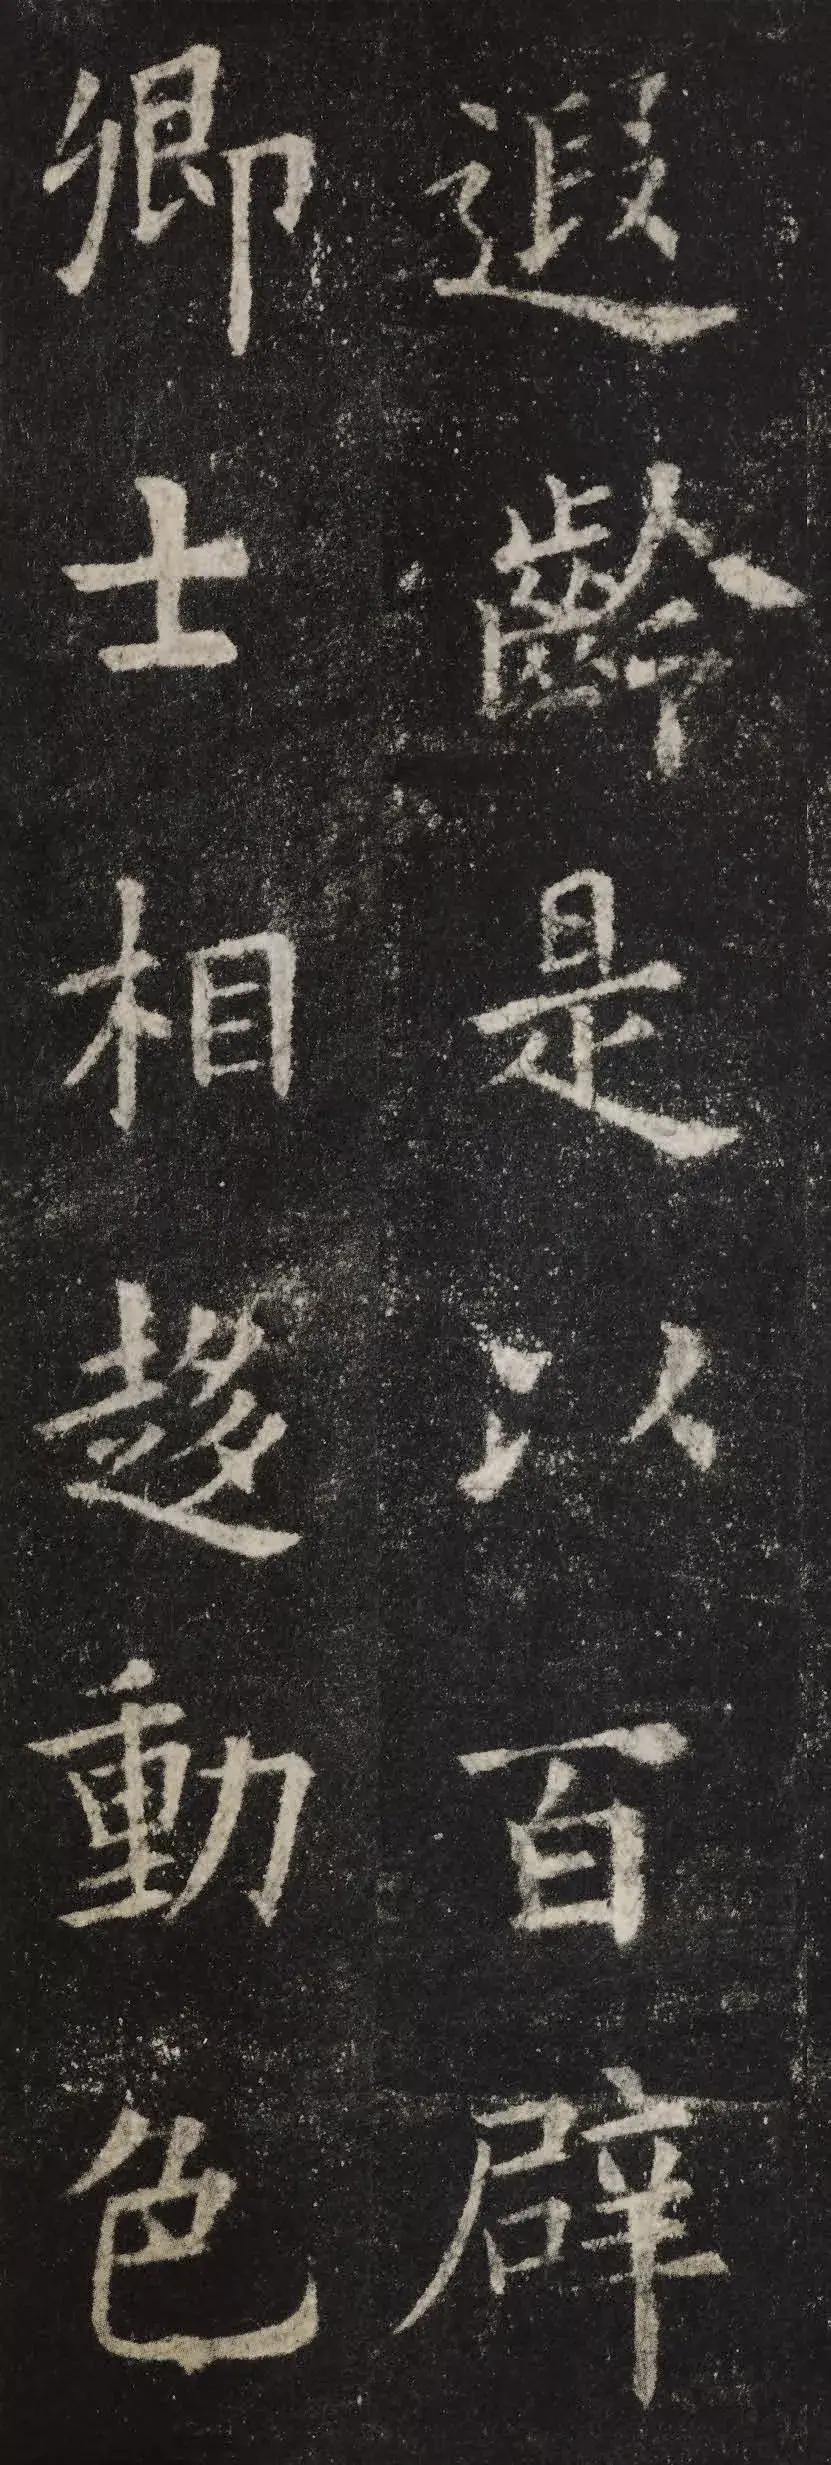 遐齡是以百辟
卿士相趍動色